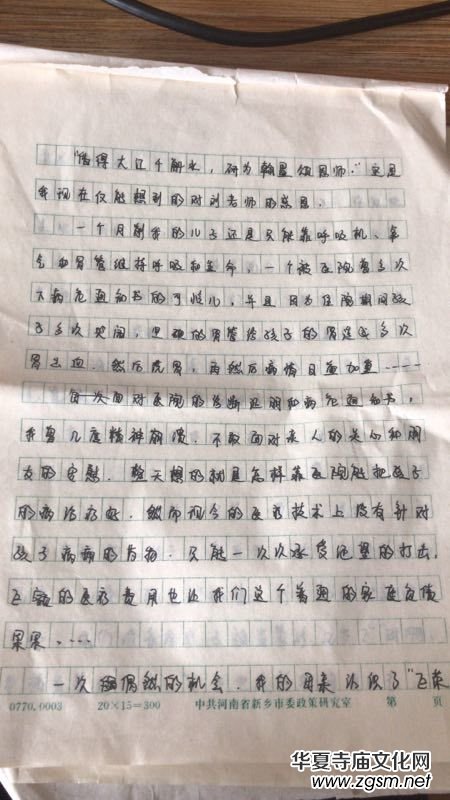 “借得大江千斛水，研为翰墨颂恩师。”这是
我现在仅能想到的对刘老师的感恩。
一个月前我的儿子还是只能靠呼吸机、氧
气和胃管维持呼吸和生命，一个被医院曾多次
下病危通知书的可怜儿，并且因为住院期间孩
子多次哭闹，坚硬的胃管给孩子的胃造成多次
胃出血，然后洗胃，再然后病情日益加重……
每次面对医院的诊断证明和病危通知书，
我曾几度精神崩溃，不敢面对家人的关心和朋
友的安慰，整天想的就是怎样靠医院能把孩子
的病治疗好，然而现今的医疗技术上没有针对
孩子病病的有药，只能一次次承受绝望的打击，
飞额的医疗费用也让我们这个普通的家庭负债
累累……
一次偶然的机会，我的母亲认识了“飞荣
0770.0003 20×15=300 中共河南省新乡市委政策研究室 第 页
华夏寺庙文化网
www.zgsm.net